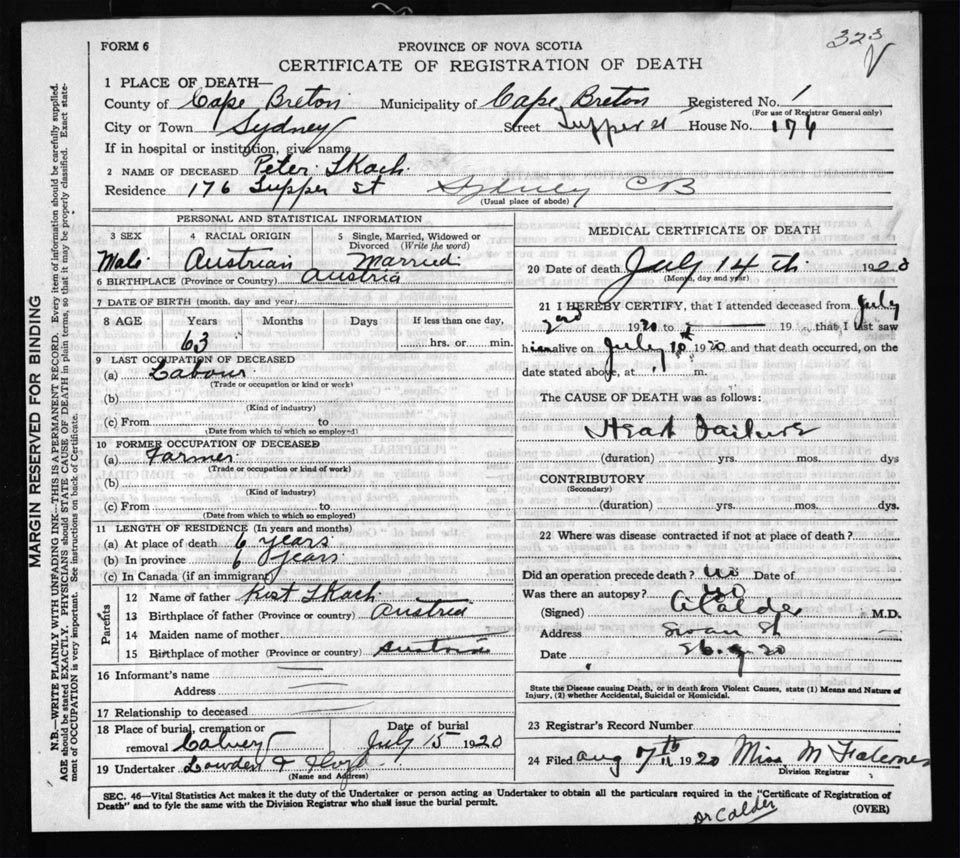 323
FORM 6
PROVINCE OF NOVA SCOTIA
CERTIFICATE OF REGISTRATION OF DEATH
1 PLACE OF DEATH—
County of Cape Breton Municipality of Cape Breton Registered No. 1
(For use of Registrar General only)
City or Town Sydney Street Tupper St House No. 176
If in hospital or institution, give name
2 NAME OF DECEASED Peter Skach.
Residence 176 Tupper St Sydney CB
(Usual place of abode)
PERSONAL AND STATISTICAL INFORMATION
3 SEX
Male
4 RACIAL ORIGIN
Austrian
5 Single, Married, Widowed or Divorced (Write the word)
Married
6 BIRTHPLACE (Province or Country) Austria
7 DATE OF BIRTH (month, day and year)
8 AGE Years Months Days If less than one day,
63 hrs. or min.
9 LAST OCCUPATION OF DECEASED
(a) Labour
(Trade or occupation or kind or work)
(b)
(Kind of industry)
(c) From to
(Date from which to which so employed)
10 FORMER OCCUPATION OF DECEASED
(a) Farmer
(Trade or occupation or kind of work)
(b)
(Kind of industry)
(c) From to
(Date from which to which so employed)
11 LENGTH OF RESIDENCE (In years and months)
(a) At place of death 6 years
(b) In province 6 years
(c) In Canada (if an immigrant)
Parents
12 Name of father Skach
13 Birthplace of father (Province or country) Austria
14 Maiden name of mother
15 Birthplace of mother (Province or country) Austria
16 Informant's name
Address
17 Relationship to deceased
18 Place of burial, cremation or removal Calvery
Date of burial
July 15 1920
19 Undertaker Lowden & Floyd
(Name and Address)
MEDICAL CERTIFICATE OF DEATH
20 Date of death July 14 th 1920
(Month, day and year)
21 I HEREBY CERTIFY, that I attended deceased from July
1920 to 19 that I last saw
him alive on July 10 1920 and that death occurred, on the
date stated above, at m.
The CAUSE OF DEATH was as follows:
Heart Failure
(duration) yrs. mos. dys
CONTRIBUTORY
(Secondary)
(duration) yrs. mos. dys.
22 Where was disease contracted if not at place of death?
Did an operation precede death? no Date of
Was there an autopsy? no
(Signed) Calder M.D.
Address Swan St
Date 20
State the Disease causing Death, or in death from Violent Causes, state (1) Means and Nature of
Injury, (2) whether Accidental, Suicidal or Homicidal.
23 Registrar's Record Number
24 Filed Aug 7th 1920 Miss M
Division Registrar
SEC. 46—Vital Statistics Act makes it the duty of the Undertaker or person acting as Undertaker to obtain all the particulars required in the "Certificate of Registration of
Death" and to fyle the same with the Division Registrar who shall issue the burial permit.
Dr Calder
(OVER)
MARGIN RESERVED FOR BINDING
N.B.—WRITE PLAINLY WITH UNFADING INK—THIS IS A PERMANENT RECORD. Every item of information should be carefully supplied.
AGE should be stated EXACTLY. PHYSICIANS should STATE CAUSE OF DEATH in plain terms, so that it may be properly classified. Exact state-
ment of OCCUPATION is very important. See instructions on back of Certificate.